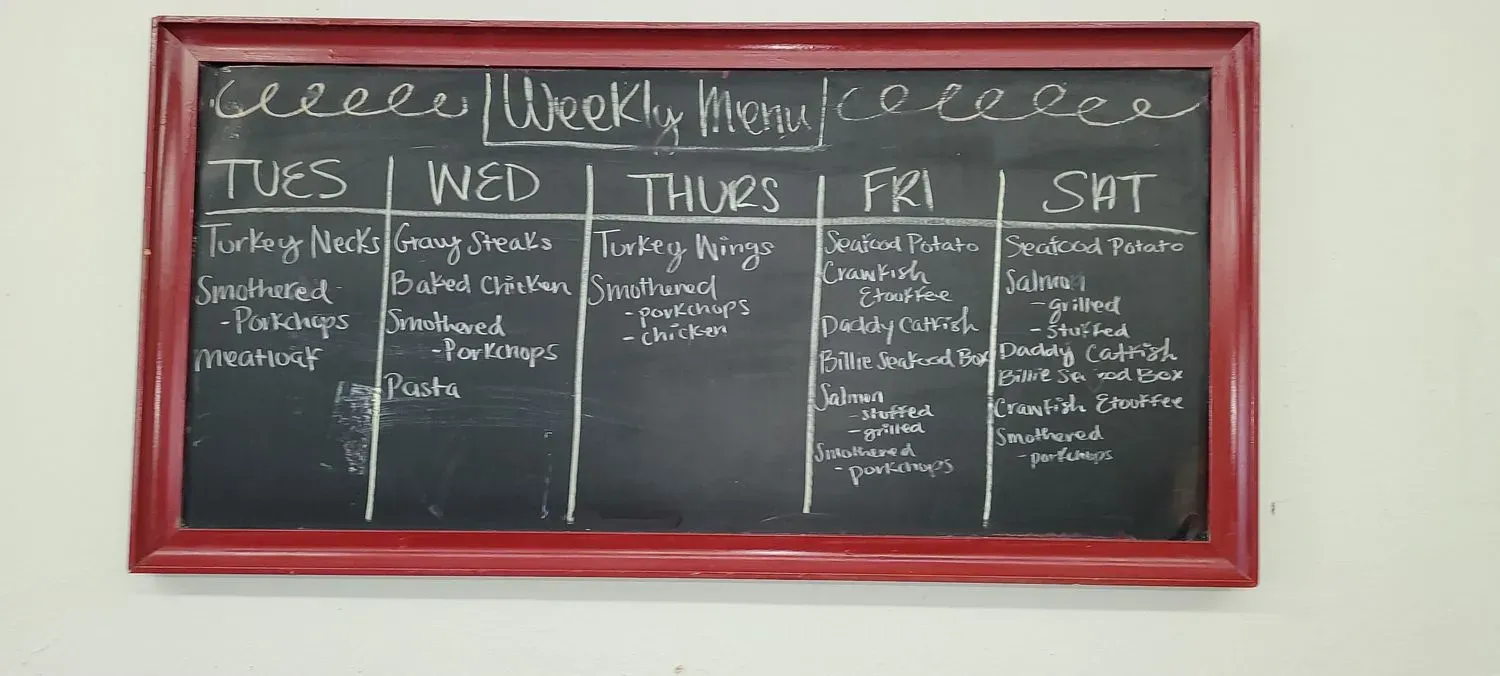 Weekly Menu
TUES
Turkey Necks
Smothered
- Porkchops
Meatloaf
WED
Gravy Steaks
Baked Chicken
Smothered
- Porkchops
Pasta
THURS
Turkey Wings
Smothered
- porkchops
- chicken
FRI
Seafood Potato
Crawfish
Etouffee
Daddy Catfish
Billie Seafood Box
Salmon
- stuffed
- grilled
Smothered
- porkchops
SAT
Seafood Potato
Salmon
- grilled
- stuffed
Daddy Catfish
Billie Sea ood Box
Crawfish Etouffee
Smothered
- porkchops